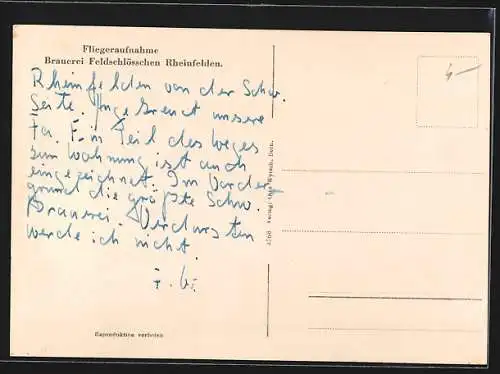 Fliegeraufnahme
Brauerei Feldschlösschen Rheinfelden.
Rheinfelden von der Schw.
Seite. Angekreuzt unsere
Fa. Ein Teil des Weges
zum Wohnung ist auch
eingezeichnet. Im Vorder-
grund die größte Schw.
Brauerei. Verdursten
werde ich nicht.
Reproduktion verboten
Verlag: Otto Wyrsch, Bern.
4—